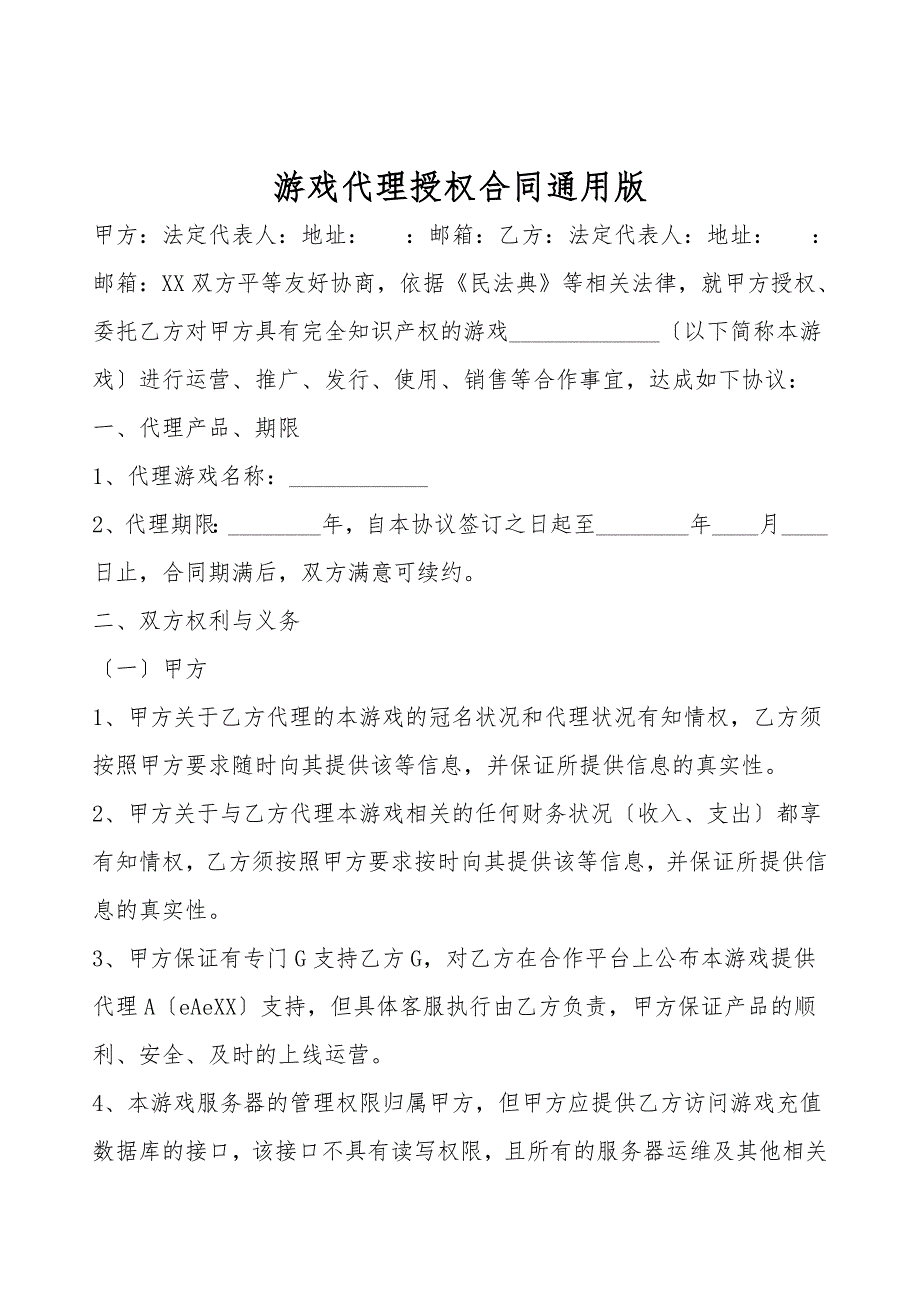 游戏代理授权合同通用版
甲方：法定代表人：地址：　　：邮箱：乙方：法定代表人：地址：　　：
邮箱：XX双方平等友好协商，依据《民法典》等相关法律，就甲方授权、
委托乙方对甲方具有完全知识产权的游戏_____________〔以下简称本游
戏〕进行运营、推广、发行、使用、销售等合作事宜，达成如下协议：
一、代理产品、期限
1、代理游戏名称：____________
2、代理期限：________年，自本协议签订之日起至________年____月____
日止，合同期满后，双方满意可续约。
二、双方权利与义务
〔一〕甲方
1、甲方关于乙方代理的本游戏的冠名状况和代理状况有知情权，乙方须
按照甲方要求随时向其提供该等信息，并保证所提供信息的真实性。
2、甲方关于与乙方代理本游戏相关的任何财务状况〔收入、支出〕都享
有知情权，乙方须按照甲方要求按时向其提供该等信息，并保证所提供信
息的真实性。
3、甲方保证有专门G支持乙方G，对乙方在合作平台上公布本游戏提供
代理A〔eAeXX〕支持，但具体客服执行由乙方负责，甲方保证产品的顺
利、安全、及时的上线运营。
4、本游戏服务器的管理权限归属甲方，但甲方应提供乙方访问游戏充值
数据库的接口，该接口不具有读写权限，且所有的服务器运维及其他相关